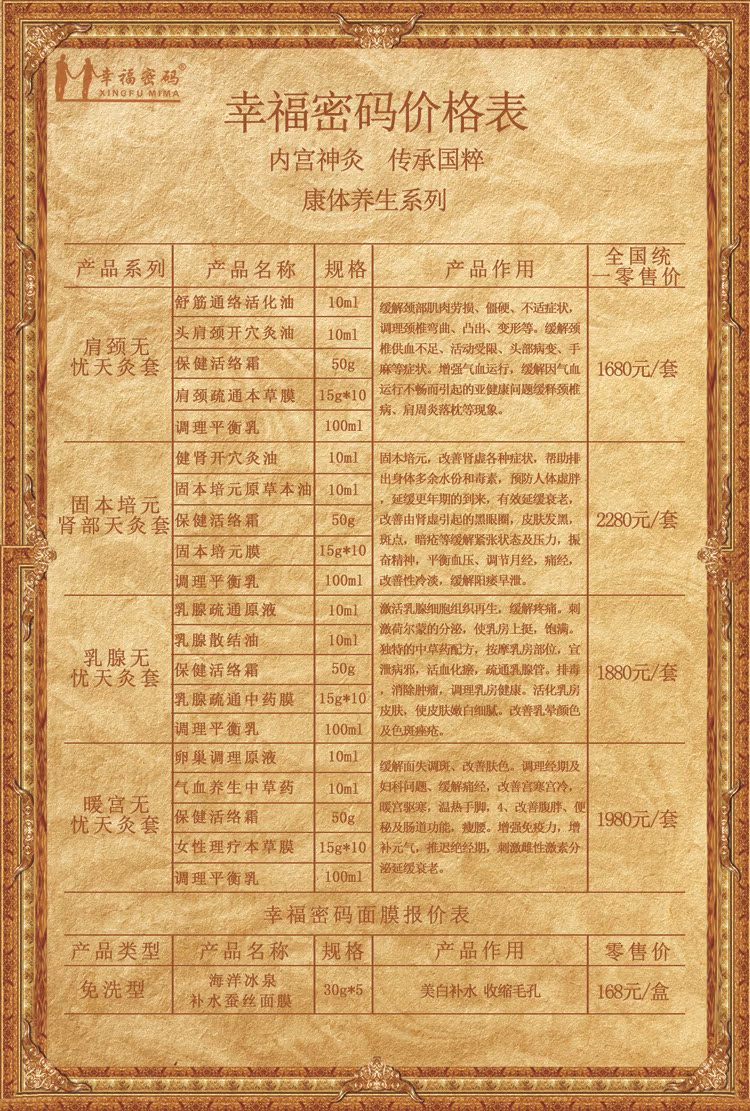 幸福密码®
XINGFU MIMA
幸福密码价格表
内宫神灸 传承国粹
康体养生系列
产品系列 产品名称 规格 产品作用 全国统
一零售价
肩颈无
忧天灸套
舒筋通络活化油 10ml
头肩颈开穴灸油 10ml
保健活络霜 50g
肩颈疏通本草膜 15g*10
调理平衡乳 100ml
缓解颈部肌肉劳损、僵硬、不适症状,
调理颈椎弯曲、凸出、变形等。缓解颈
椎供血不足、活动受限、头部病变、手
麻等症状。增强气血运行,缓解因气血
运行不畅而引起的亚健康问题缓释颈椎
病、肩周炎落枕等现象。
1680元/套
固本培元
肾部天灸套
健肾开穴灸油 10ml
固本培元原草本油 10ml
保健活络霜 50g
固本培元膜 15g*10
调理平衡乳 100ml
固本培元,改善肾虚各种症状,帮助排
出身体多余水份和毒素,预防人体虚胖
,延缓更年期的到来,有效延缓衰老,
改善由肾虚引起的黑眼圈,皮肤发黑,
斑点,暗疮等缓解紧张状态及压力,振
奋精神,平衡血压、调节月经,痛经,
改善性冷淡,缓解阳痿早泄。
2280元/套
乳腺无
忧天灸套
乳腺疏通原液 10ml
乳腺散结油 10ml
保健活络霜 50g
乳腺疏通中药膜 15g*10
调理平衡乳 100ml
激活乳腺细胞组织再生,缓解疼痛。刺
激荷尔蒙的分泌,使乳房上挺,饱满。
独特的中草药配方,按摩乳房部位,宣
泄病邪,活血化瘀,疏通乳腺管。排毒
,消除肿瘤,调理乳房健康。活化乳房
皮肤,使皮肤嫩白细腻。改善乳晕颜色
及色斑痤疮。
1880元/套
暖宫无
忧天灸套
卵巢调理原液 10ml
气血养生中草药 10ml
保健活络霜 50g
女性理疗本草膜 15g*10
调理平衡乳 100ml
缓解面失调斑、改善肤色。调理经期及
妇科问题、缓解痛经,改善宫寒宫冷,
暖宫驱寒,温热于脚,4、改善腹胖、便
秘及肠道功能,瘦腰。增强免疫力,增
补元气,推迟绝经期,刺激雌性激素分
泌延缓衰老。
1980元/套
幸福密码面膜报价表
产品类型 产品名称 规格 产品作用 零售价
免洗型
海洋冰泉
补水蚕丝面膜
30g*5
美白补水 收缩毛孔
168元/盒